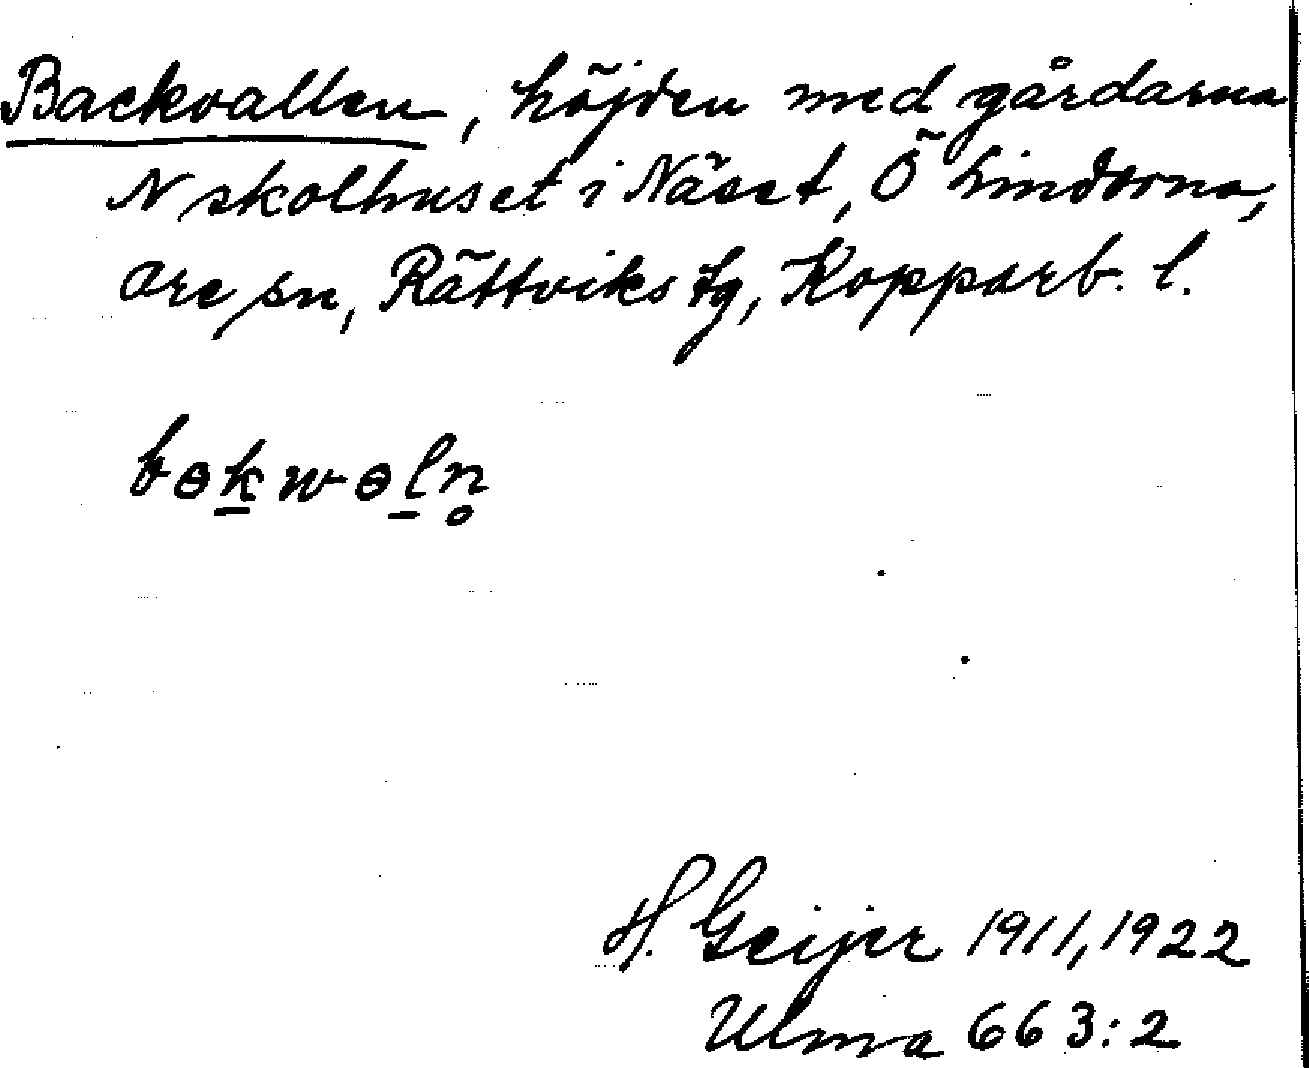 Backvallen, höjden med gårdarna
N skolhuset i Näset, Ö hindorna,
Ore sn, Rättviks tg, Kopparb. l.
bɵk̲wɵl̲n̥
H. Geijer 1911, 1922
Ulma 663:2